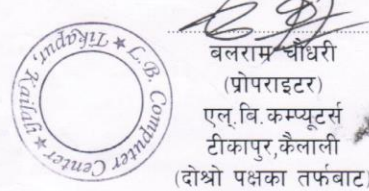 L.B. Computer Center
Tikapur, Kailali
बलराम चौधरी
(प्रोपराइटर)
एल.वि.कम्प्यूटर्स
टीकापुर,कैलाली
(दोश्रो पक्षका तर्फबाट)